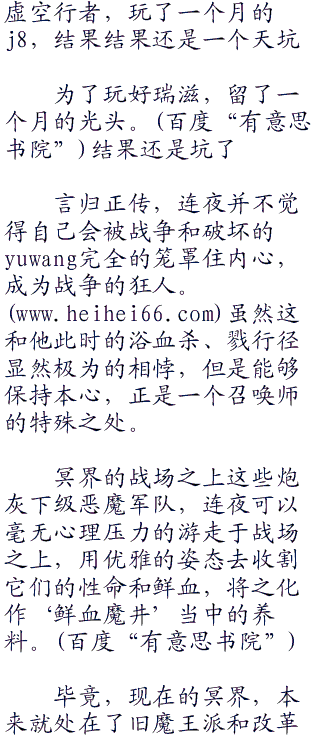 虚空行者，玩了一个月的
j8，结果结果还是一个天坑
为了玩好瑞滋，留了一
个月的光头。(百度“有意思
书院”)结果还是坑了
言归正传，连夜并不觉
得自己会被战争和破坏的
yuwang完全的笼罩住内心，
成为战争的狂人。
(www.heihei66.com)虽然这
和他此时的浴血杀、戮行径
显然极为的相悖，但是能够
保持本心，正是一个召唤师
的特殊之处。
冥界的战场之上这些炮
灰下级恶魔军队，连夜可以
毫无心理压力的游走于战场
之上，用优雅的姿态去收割
它们的性命和鲜血，将之化
作‘鲜血魔井’当中的养
料。(百度“有意思书院”)
毕竟，现在的冥界，本
来就处在了旧魔王派和改革